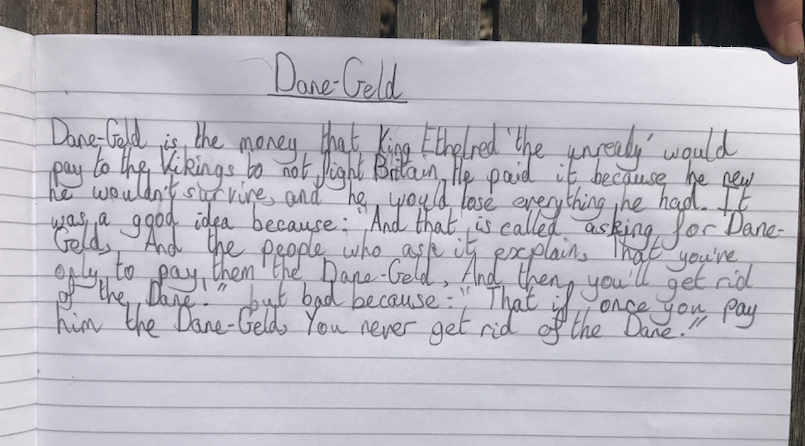 Dane-Geld
Dane-Geld is the money that King Ethelred 'the unready' would
pay to the Vikings to not fight Britain. He paid it because he new
he wouldn't survive, and he would lose everything he had. It
was a good idea because:"And that is called asking for Dane-
Geld, And the people who ask it explain, That you've
only to pay them the Dane-Geld, And then you'll get rid
of the Dane!" but bad because:" That if once you pay
him the Dane-Geld, You never get rid of the Dane."